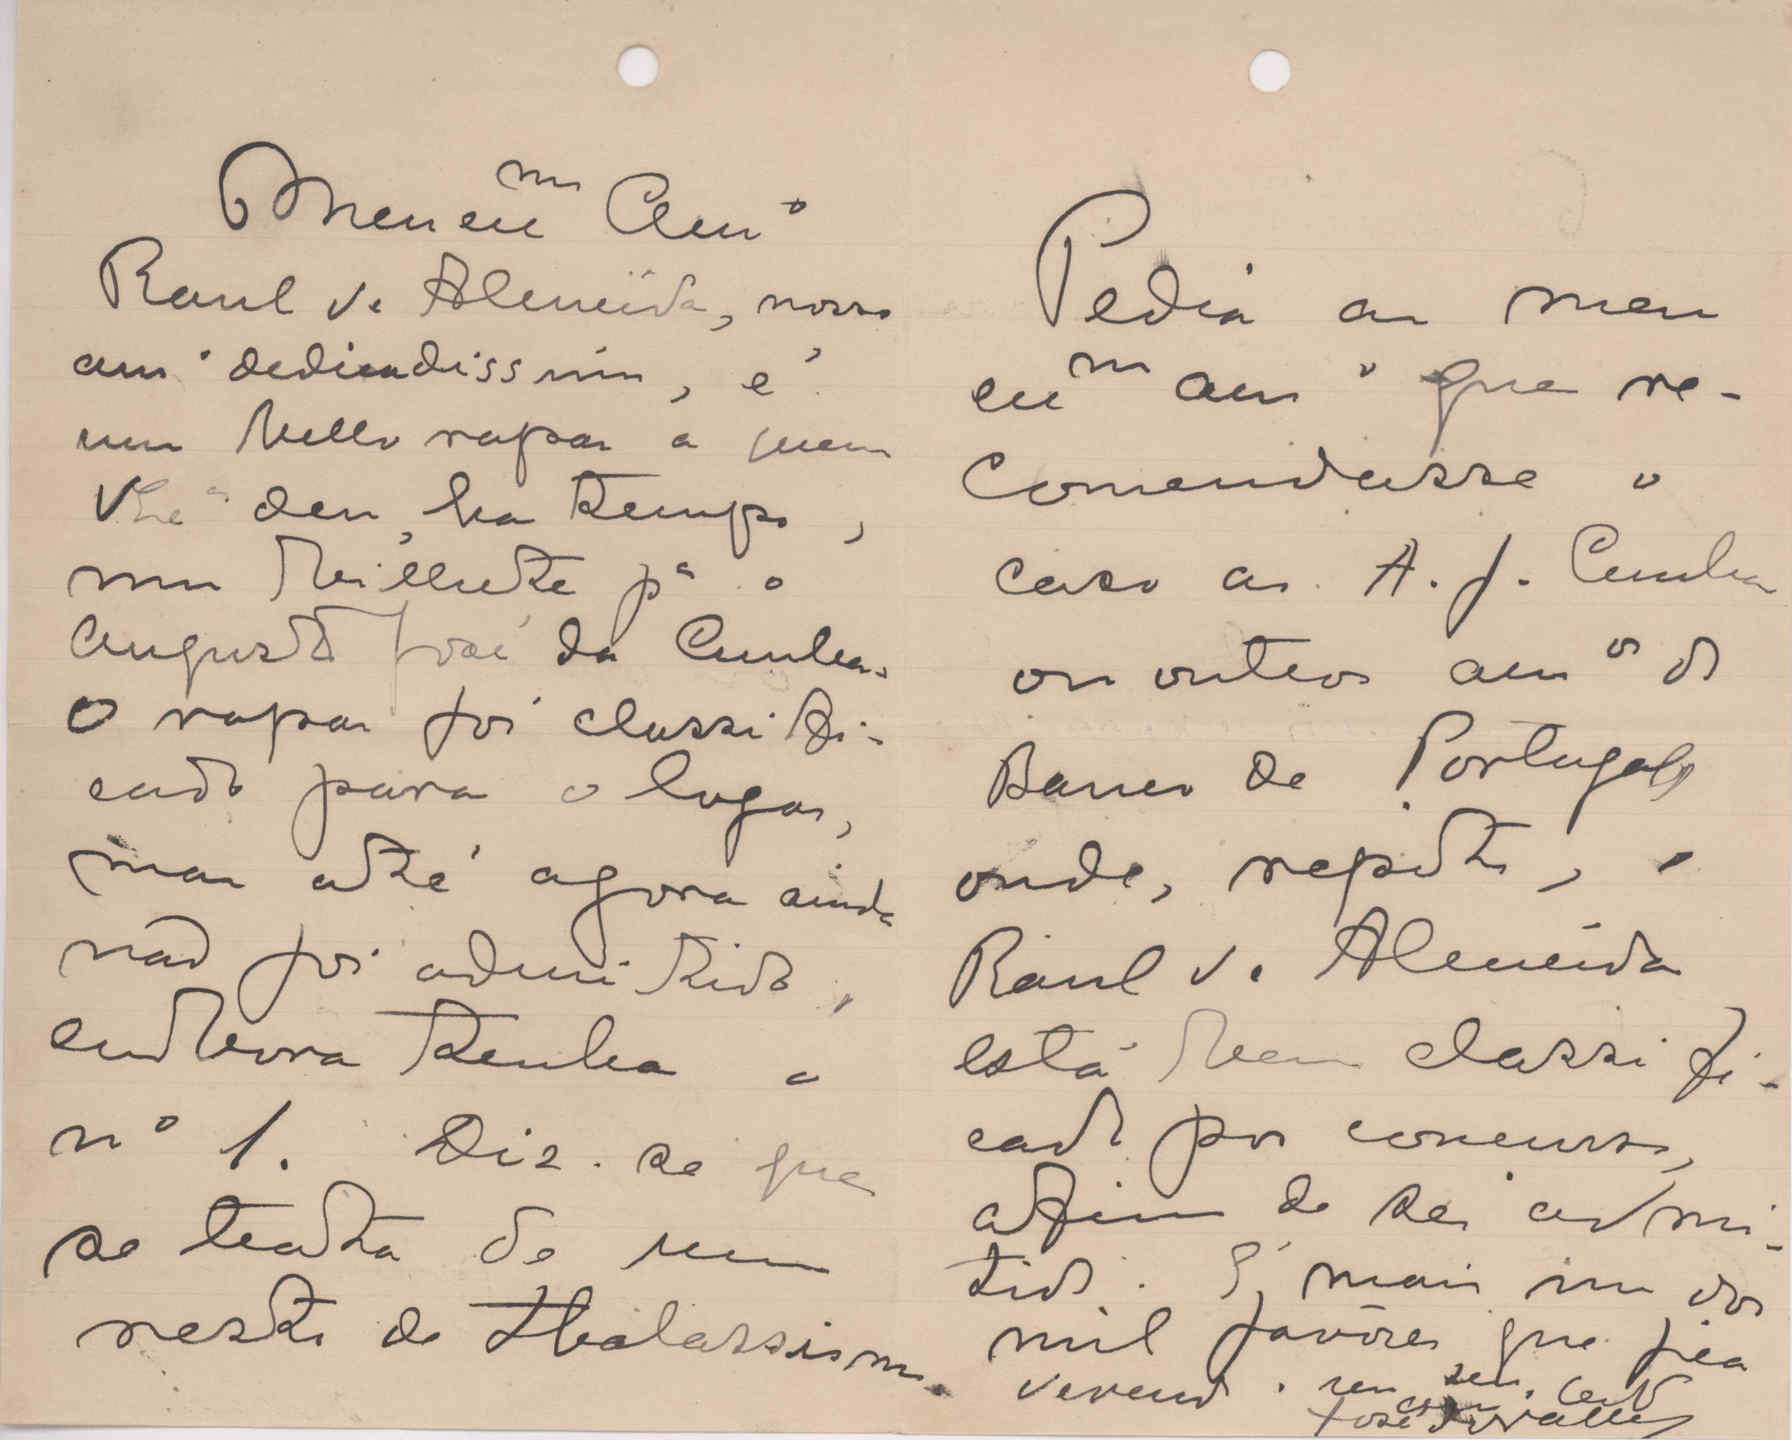 Meu eu mo Amo
Raul d'Almeida, nosso
amo dedicadissimo, é
um bello rapaz a quem
V. Exa deu, ha tempo,
um bilhete pa o
Augusto José da Cunha.
O rapaz foi classifi-
cado para o logar,
mas até agora ainda
não foi admitido,
embora tenha o
no 1. Diz-se que
se trata de um
resto de thalassismo.
Pedia ao meu
eu mo amo que re-
comendasse o
caso ao A. J. Cunha
ou outros amos do
Banco de Portugal,
onde, repito, o
Raul d'Almeida
está bem classifi-
cado por concurso,
afim de ser admi-
tido. É, mais um dos
mil favôres que fica
devendo.
José do Valle